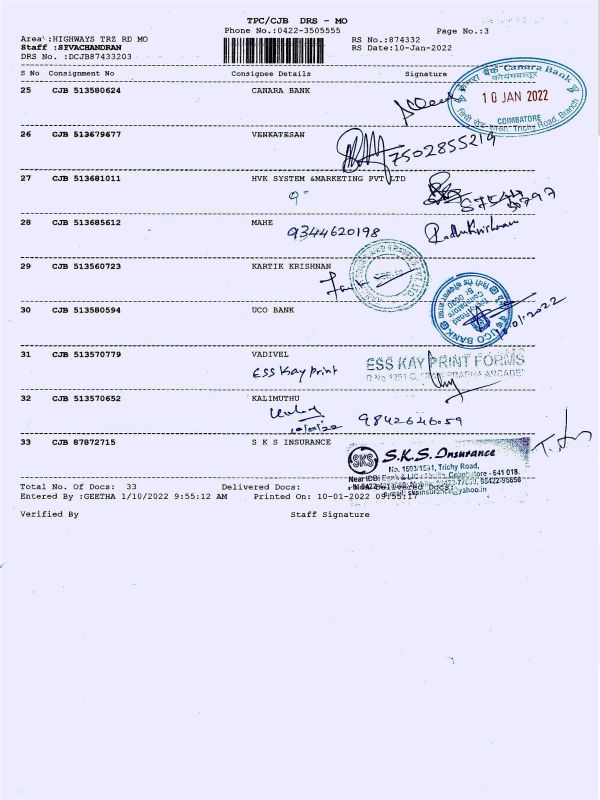 TPC/CJB DRS - MO
Phone No.:0422-3505555 Page No.:3
Area :HIGHWAYS TRZ RD MO RS No.:874332
Staff :SIVACHANDRAN RS Date:10-Jan-2022
DRS No. :DCJB87433203
S No Consignment No Consignee Details Signature
25 CJB 513580624 CANARA BANK
केनरा बैंक Canara Bank
कोयम्बत्तूर
10 JAN 2022
COIMBATORE
Trichy Road, Branch
26 CJB 513679677 VENKATESAN
7502855219
27 CJB 513681011 HVK SYSTEM &MARKETING PVT LTD
28 CJB 513685612 MAHE
9344620198 Radhakrishnan
29 CJB 513560723 KARTIK KRISHNAN
30 CJB 513580594 UCO BANK
UCO BANK
Trichy Road
Coimbatore
10/01/2022
31 CJB 513570779 VADIVEL
ESS Kay Print ESS KAY PRINT FORMS
PRABHA ARCADE
32 CJB 513570652 KALIMUTHU
10/01/22 9842646059
33 CJB 87872715 S K S INSURANCE
SKS S.K.S. Insurance
No. 1590/1591, Trichy Road,
Near IDBI Bank & LIC Coimbatore - 641 018.
email: sksinsurance@yahoo.in
Total No. Of Docs: 33 Delivered Docs: Non Delivered Docs:
Entered By :GEETHA 1/10/2022 9:55:12 AM Printed On: 10-01-2022 09:55:17
Verified By Staff Signature